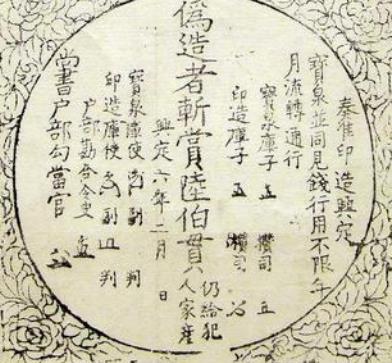 奏准印造興定
寶泉並同見錢行用不限年
月流轉通行
寶泉庫子 攢司
印造庫子 攢司
偽造者斬賞陸伯貫
仍給犯
人家產
興定六年二月 日
寶泉庫使 副 判
印造庫使 副 判
戶部勘合令史
尚書戶部勾當官